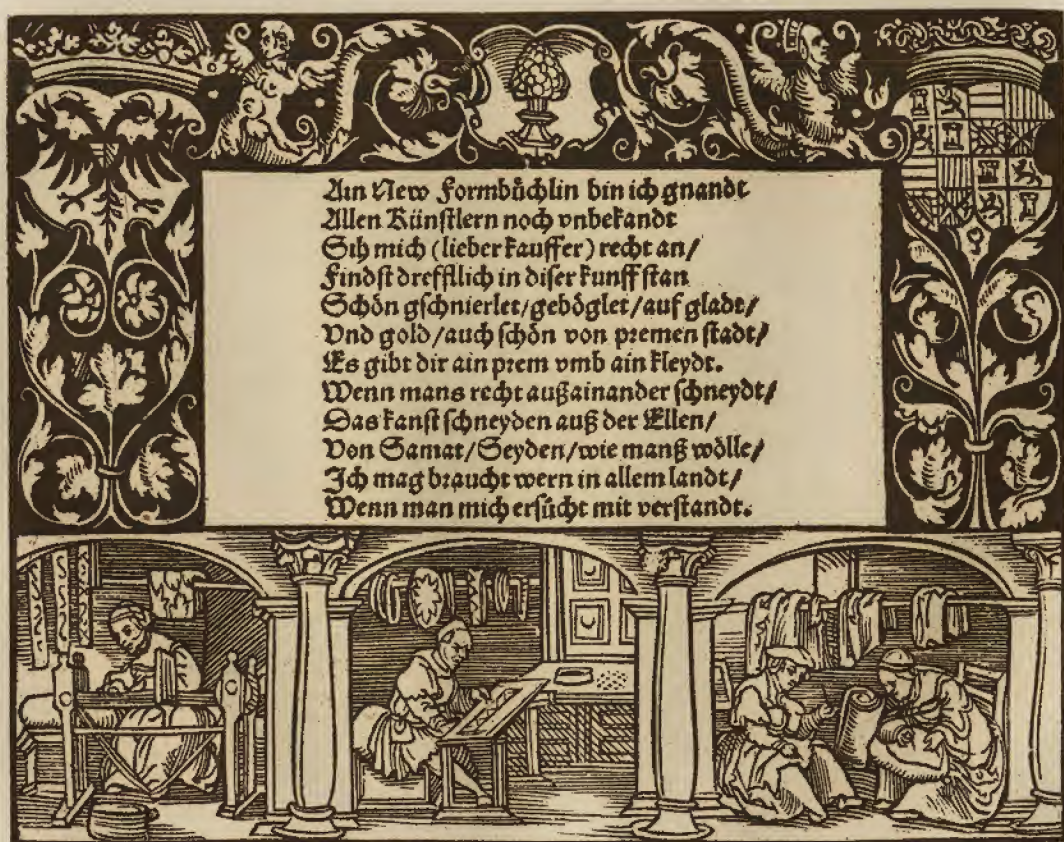 Ain New Formbüchlin bin ich gnandt
Allen Künstlern noch vnbekandt
Sih mich (lieber kauffer) recht an/
Findst drefflich in diser kunst stan
Schön gschnierlet/geböglet/auf gladt/
Vnd gold/auch schön von premen stadt/
Es gibt dir ain prem vmb ain kleydt.
Wenn mans recht außainander schneydt/
Das kanst schneyden auß der Ellen/
Von Samat/Seyden/wie manß wölle/
Ich mag braucht wern in allem landt/
Wenn man mich ersücht mit verstandt.